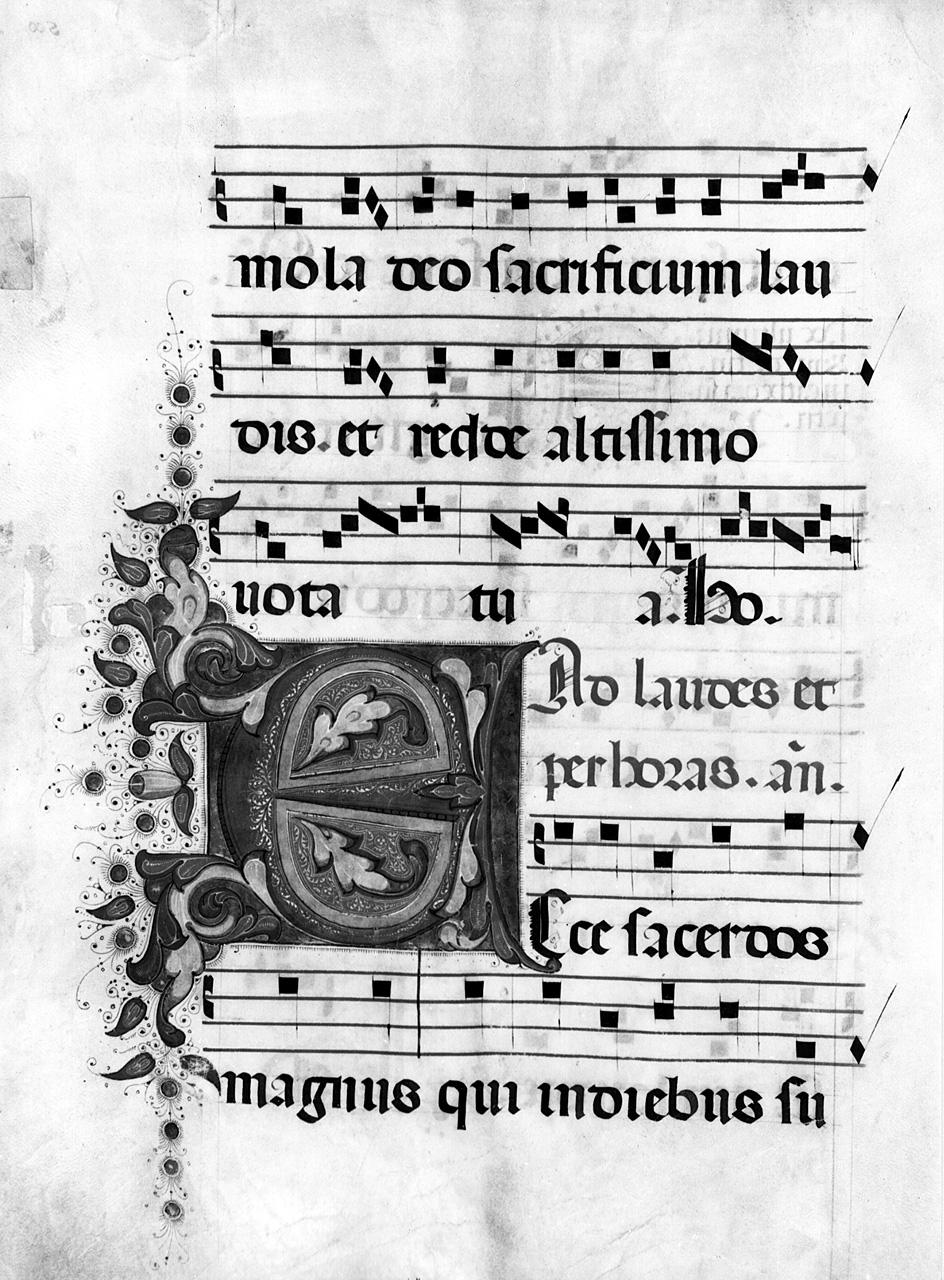 mola deo sacrificium lau
dis. et redde altissimo
uota tu a.
Ad laudes et
per horas. añ.
Ecce sacerdos
magnus qui in diebus su